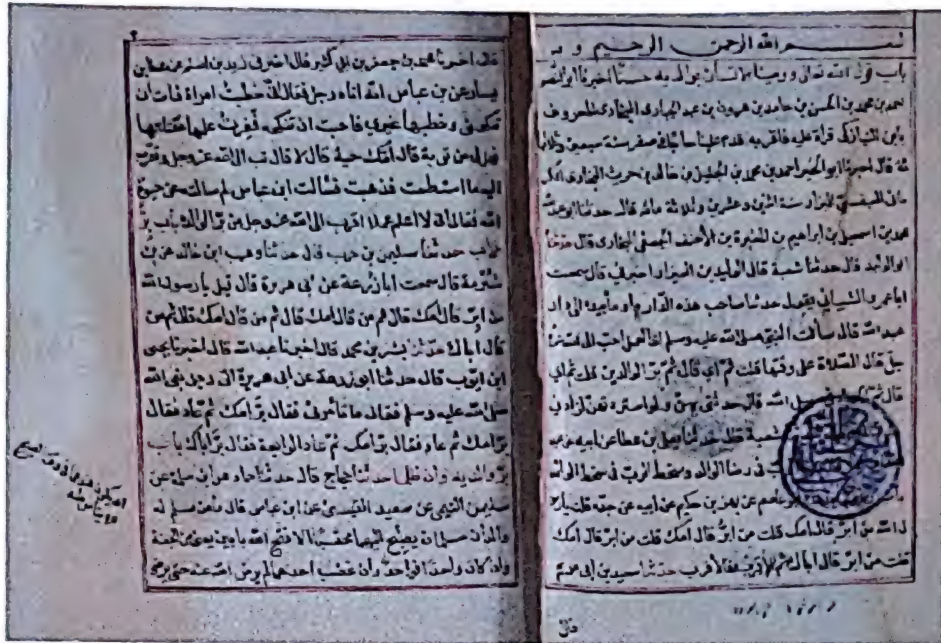 بسم الله الرحمن الرحيم وبه
باب قول الله تعالى ووصينا الانسان بوالديه حسنا اخبرنا ابو النصر
احمد بن محمد بن الحسن بن حامد بن هرون بن عبد الجبار البخاري المعروف
بابن النيازكي قراة عليه فاقر به قدم علينا حاجا في صفر سنة سبعين وثلثما
ئة قال اخبرنا ابو الخير احمد بن محمد بن الجليل بن خالد بن حريث البخاري
سنة اثنين وعشرين وثلاثة مائة قال حدثنا ابو عبد الله
محمد بن اسمعيل بن ابراهيم بن المغيرة بن الأحنف الجعفي البخاري قال حدثنا
ابو الوليد قال حدثنا شعبة قال الوليد بن العيزار اخبرني قال سمعت
ابا عمرو الشيباني يقول حدثنا صاحب هذه الدار واومأ بيده الى دار
عبد الله قال سألت النبي صلى الله عليه وسلم اي العمل احب الى الله عز و
جل قال الصلاة على وقتها قلت ثم اي قال ثم بر الوالدين قلت ثم اي
قال ثم الجهاد في سبيل الله قال حدثني بهن ولو استزدته لزادني
شعبة قال حدثنا يعلى بن عطا عن ابيه عن
في رضا الوالد وسخط الرب في سخط الوالد
عاصم عن بهز بن حكيم عن ابيه عن جده قلت يا رسو
ل الله من ابر قال امك قلت من ابر قال امك قلت من ابر قال امك
قلت من ابر قال اباك ثم الاقرب فالاقرب حدثنا سعيد بن ابي مريم
قال
قال اخبرنا محمد بن جعفر بن ابي كثير قال اخبرني زيد بن اسلم عن عطا بن
يسار عن بن عباس انه اتاه رجل فقال اني خطبت امراة فابت ان
تنكحني وخطبها غيري فاحبت ان تنكحه فغرت عليها فقتلتها
فهل لي من توبة قال امك حية قال لا قال تب الى الله عز وجل وتقرب
اليه ما استطعت فذهبت فسألت ابن عباس لم سالته عن حيوة
امه فقال اني لا اعلم عملا اقرب الى الله عز وجل من بر الوالدة باب بر
الاب حدثنا سليمن بن حرب قال حدثنا وهيب ابن خالد عن بن
شبرمة قال سمعت ابا زرعة عن ابي هريرة قال قيل يا رسول الله
من ابر قال امك قال ثم من قال امك قال ثم من قال امك قال ثم من
قال اباك حدثنا بشر بن محمد قال اخبرنا عبد الله قال اخبرنا يحيى
ابن ايوب قال حدثنا ابو زرعة عن ابي هريرة اتى رجل نبي الله
صلى الله عليه وسلم فقال ما تأمرني فقال بر امك ثم عاد فقال
بر امك ثم عاد فقال بر امك ثم عاد الرابعة فقال بر اباك باب
بر والديه وان ظلما حدثنا حجاج قال حدثنا حماد هو ابن سلمة عن
سليمن التيمي عن سعيد القيسي عن ابن عباس قال ما من مسلم له
والدان مسلمان يصبح اليهما محتسبا الا فتح الله بابين يعني من الجنة
وان كان واحدا فواحد وان غضب احدهما لم يرض الله عنه حتى يرضى